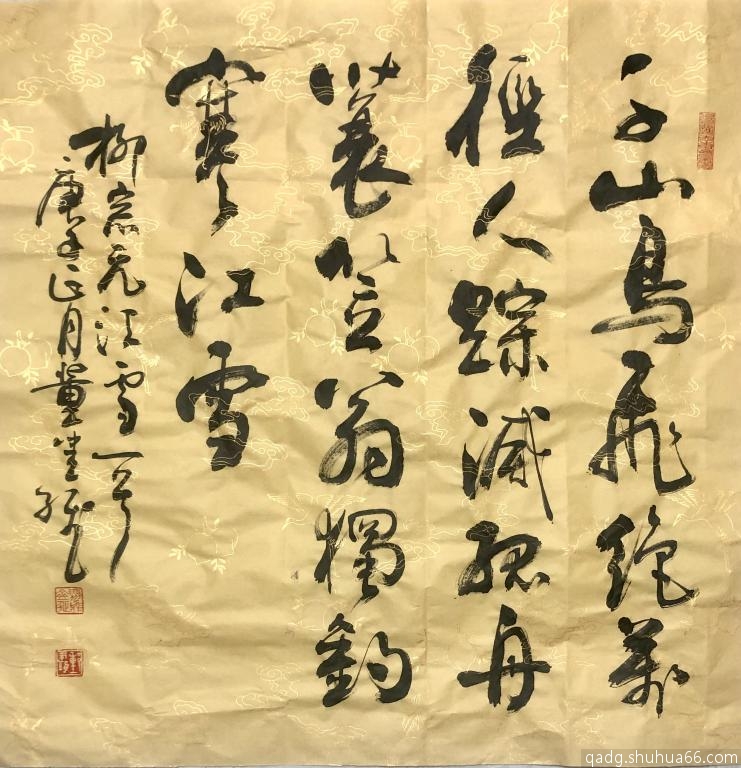 千山鳥飛絶萬
徑人踪滅孤舟
蓑笠翁獨釣
寒江雪
柳宗元江雪一首
庚子正月
qadg.shuhua66.com